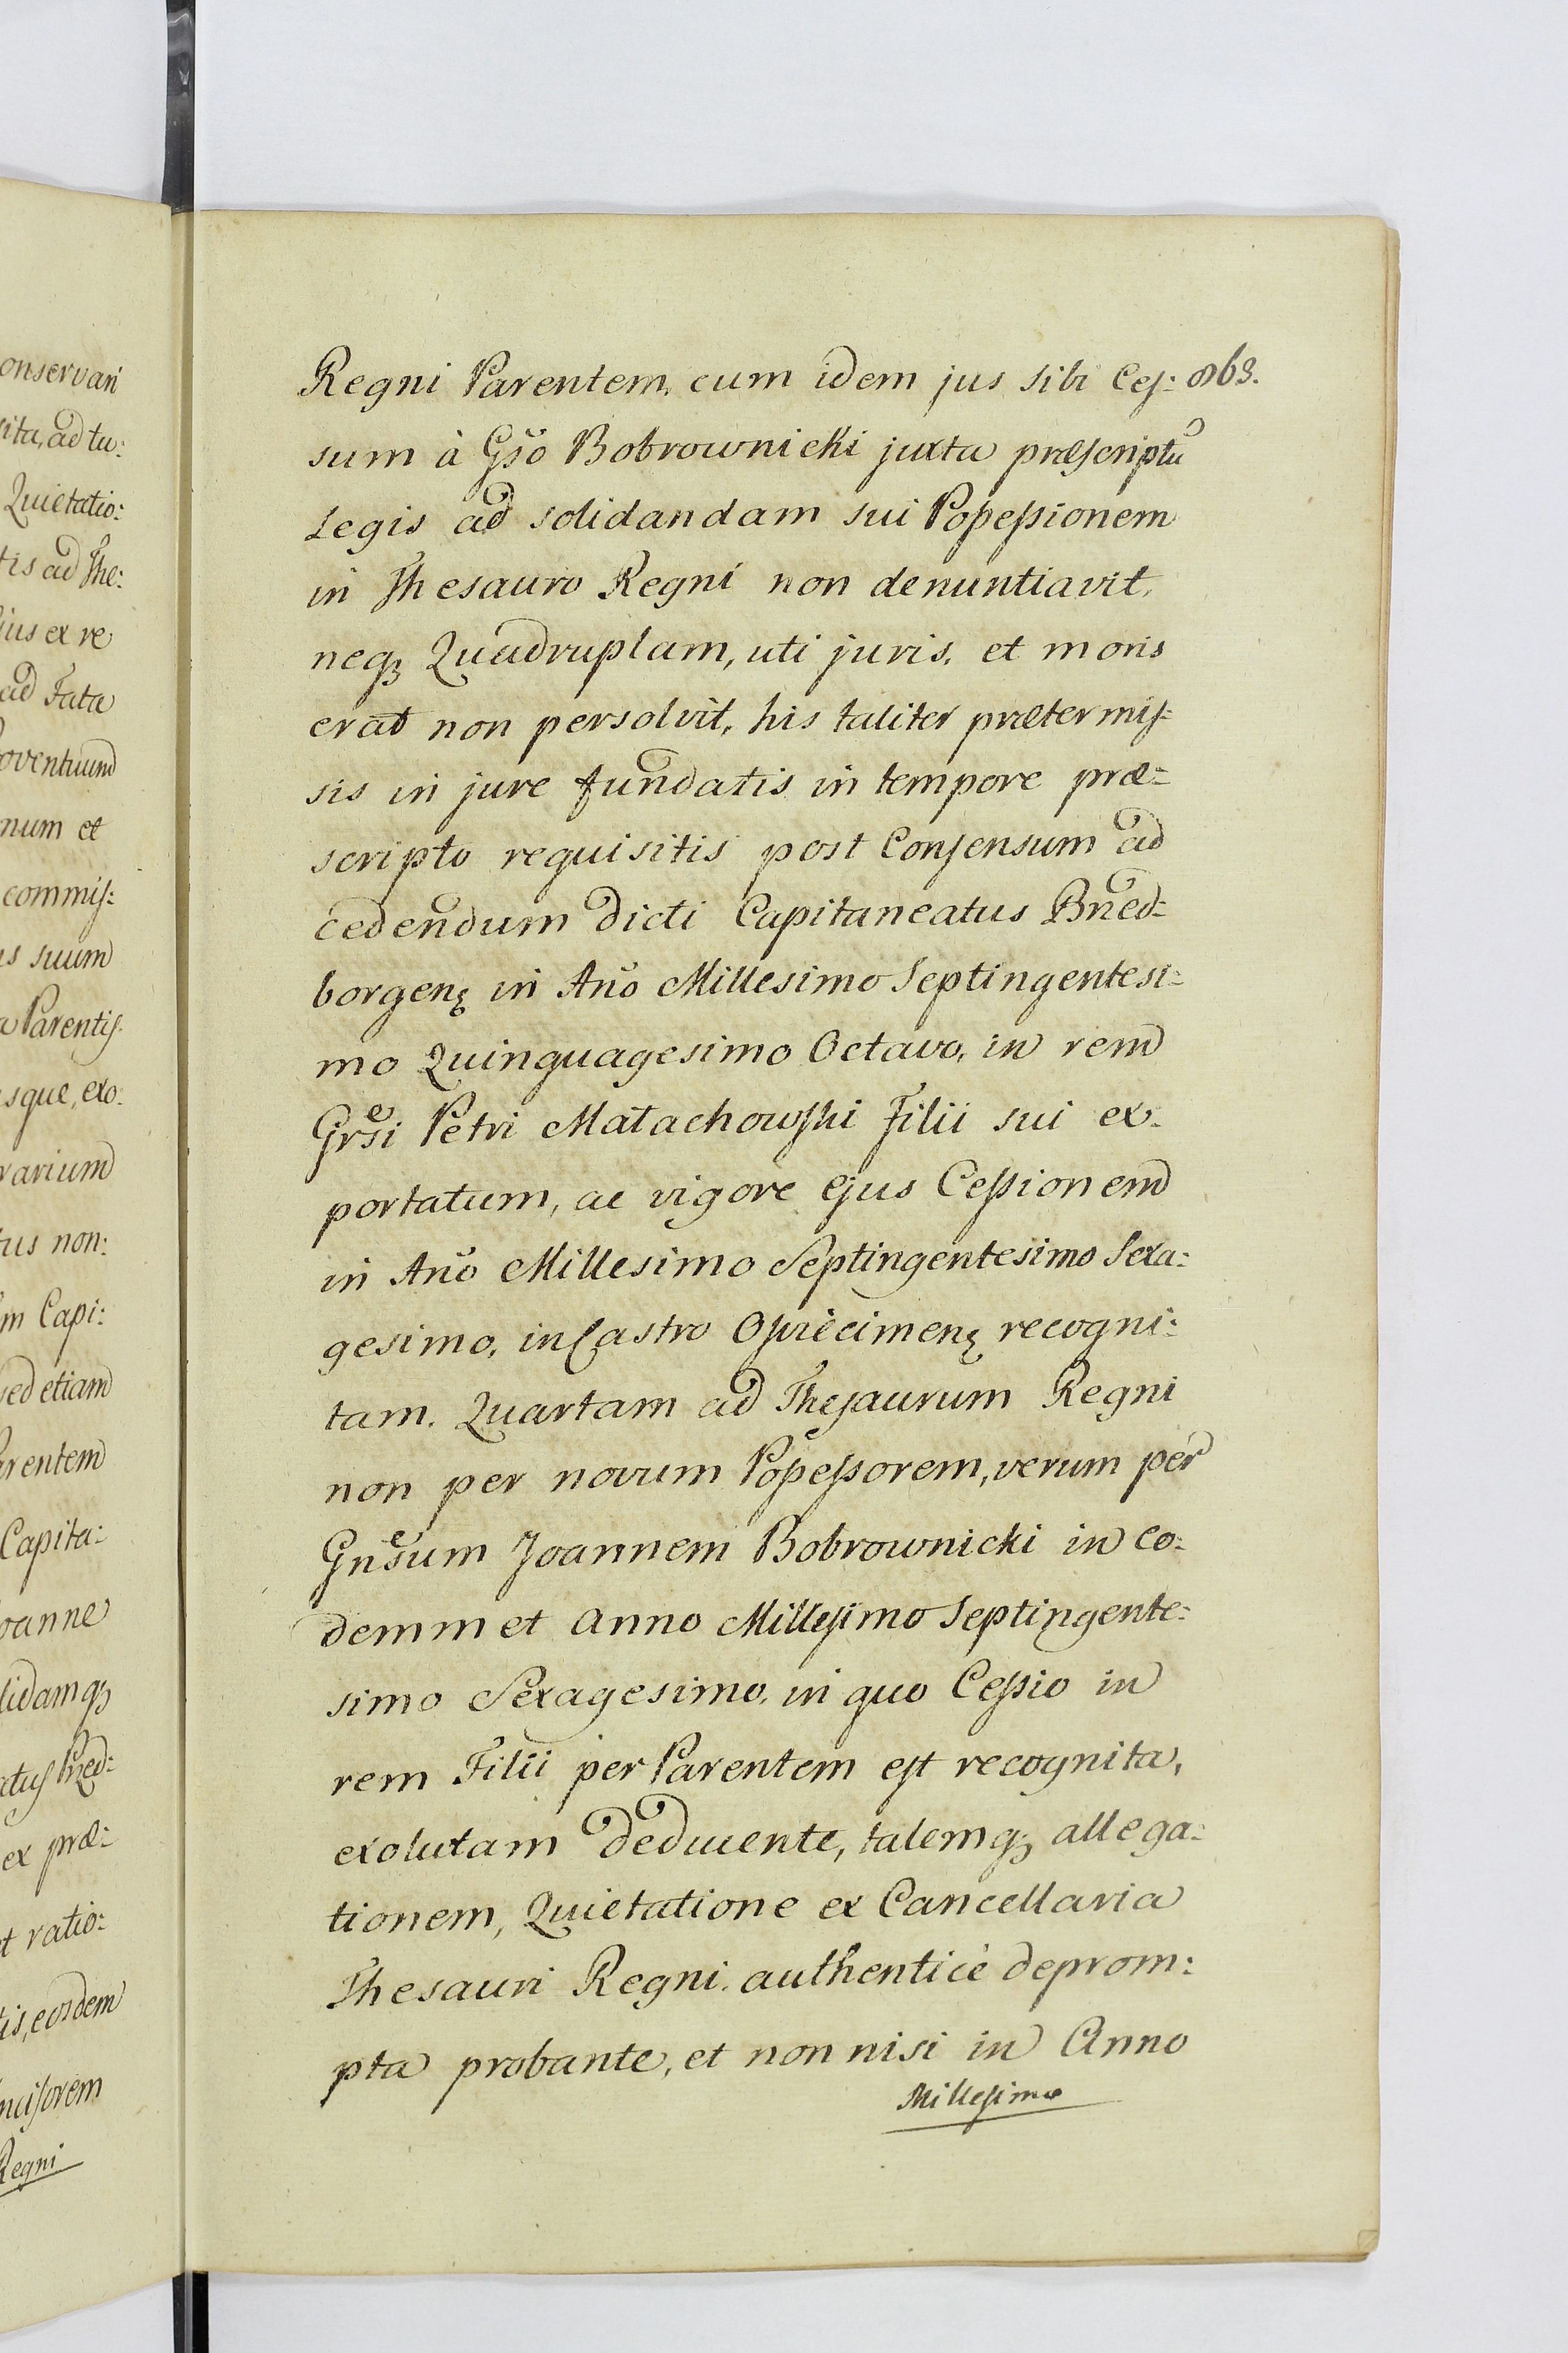 onservari
sita, ad tu:
Quietatio:
tis ad The:
jus ex re
ad Fata
oventuum
num et
commiſ:
us suum
a Parentiſ
usque, exo:
rarium
tus non:
m Capi:
sed etiam
arentem
Capita:
oanne
lidamq;
atuſ Przed:
ex præ:
et ratio:
tis, eosdem
nciſorem
Regni
Regni Parentem, cum idem jus sibi Ceſ: 968.
sum à Gso Bobrownicki juxta præſcriptũ
Legis ad solidandam sui Poſseſsionem
in Thesauro Regni non denuntiavit,
neq; Quadruplam, uti juris, et moris
erat non persolvit, his taliter prætermiſ:
sis in jure fundatis in tempore præ:
scripto requisitis post Conſensum ad
cedendum dicti Capitaneatus Przed:
borgenȩ in Año Millesimo Septingentesi:
mo Quinquagesimo Octavo, in rem
Grsi Petri Małachowſki Filii sui ex:
portatum, ac vigore Ejus Ceſsionem
in Año Millesimo Septingentesimo Sexa:
gesimo, in Castro Opoecimenȩ recogni:
tam. Quartam ad Theſaurum Regni
non per novum Poſseſsorem, verum per
Gnsum Joannem Bobrownicki in eo:
demmet Anno Milleſimo Septingente:
simo Sexagesimo, in quo Ceſsio in
rem Filii per Parentem eſt recognita,
exolutam deducente, talemq; allega:
tionem, Quietatione ex Cancellaria
Thesauri Regni, authenticè deprom:
pta probante, et non nisi in Anno
Milleſimo